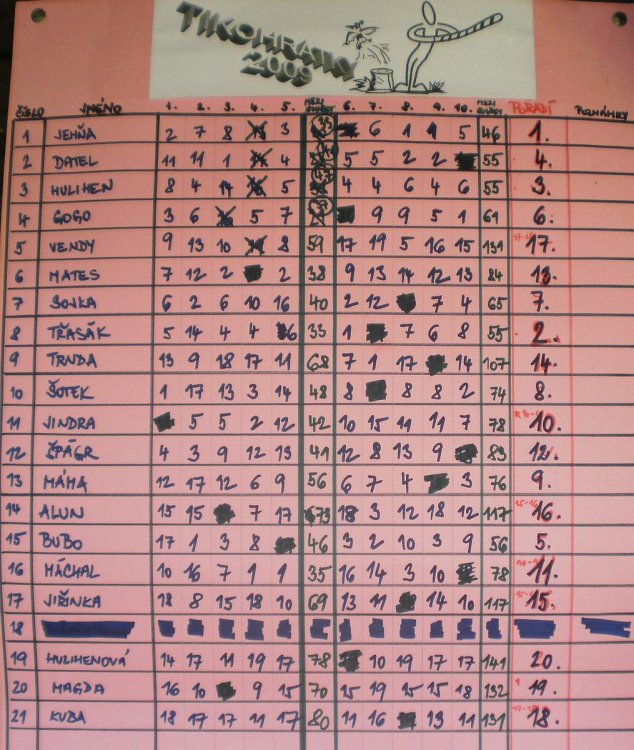 TIKOHRÁTKY
2009
ČÍSLO JMÉNO 1. 2. 3. 4. 5. MEZI SOUČTY 6. 7. 8. 9. 10. MEZI SOUČTY POŘADÍ POZNÁMKY
1 JEHŇA 2 7 8 3 6 1 9 5 46 1.
2 DATEL 11 11 1 4 5 5 2 2 55 4.
3 HULIHEN 8 4 14 5 4 4 6 4 6 55 3.
4 GOGO 3 6 5 7 9 9 5 1 61 6.
5 VENDY 9 13 10 8 59 17 19 5 16 15 131 17.
6 MATES 7 12 2 2 38 9 13 14 12 13 84 13.
7 SOJKA 6 2 6 10 16 40 2 12 7 4 65 7.
8 TŘASÁK 5 14 4 4 6 33 1 7 6 8 55 2.
9 TRNDA 13 9 18 17 11 68 7 1 17 14 107 14.
10 ŠOTEK 1 17 13 3 14 48 8 8 8 2 74 8.
11 JINDRA 5 5 2 12 42 10 15 11 11 7 78 10.
12 ŠPÁGR 4 3 9 12 13 41 12 8 13 9 83 12.
13 MÁMA 12 17 12 6 9 56 6 7 4 3 76 9.
14 ALUN 15 15 7 17 73 18 3 12 18 12 117 16.
15 BUBO 17 1 3 8 46 3 2 10 3 9 56 5.
16 MÁCHAL 10 16 7 1 1 35 16 14 3 10 78 11.
17 JIŘINKA 18 8 15 18 10 69 13 11 14 10 117 15.
18
19 HULIHENOVÁ 14 17 11 19 17 78 10 19 17 17 141 20.
20 MAGDA 16 10 9 15 70 15 19 15 15 18 132 19.
21 KUBA 18 17 17 11 17 80 11 16 13 11 131 18.